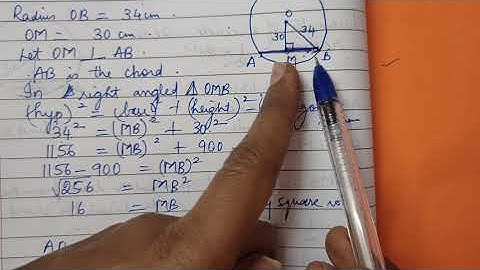 Radius OB = 34 cm
OM = 30 cm.
Let OM ⊥ AB.
AB is the chord.
In right angled Δ OMB
(hyp)² = (base)² + (height)²
34² = (MB)² + 30²
1156 = (MB)² + 900
1156 - 900 = (MB)²
√256 = MB²
16 = MB
square
O
30
34
A
M
B